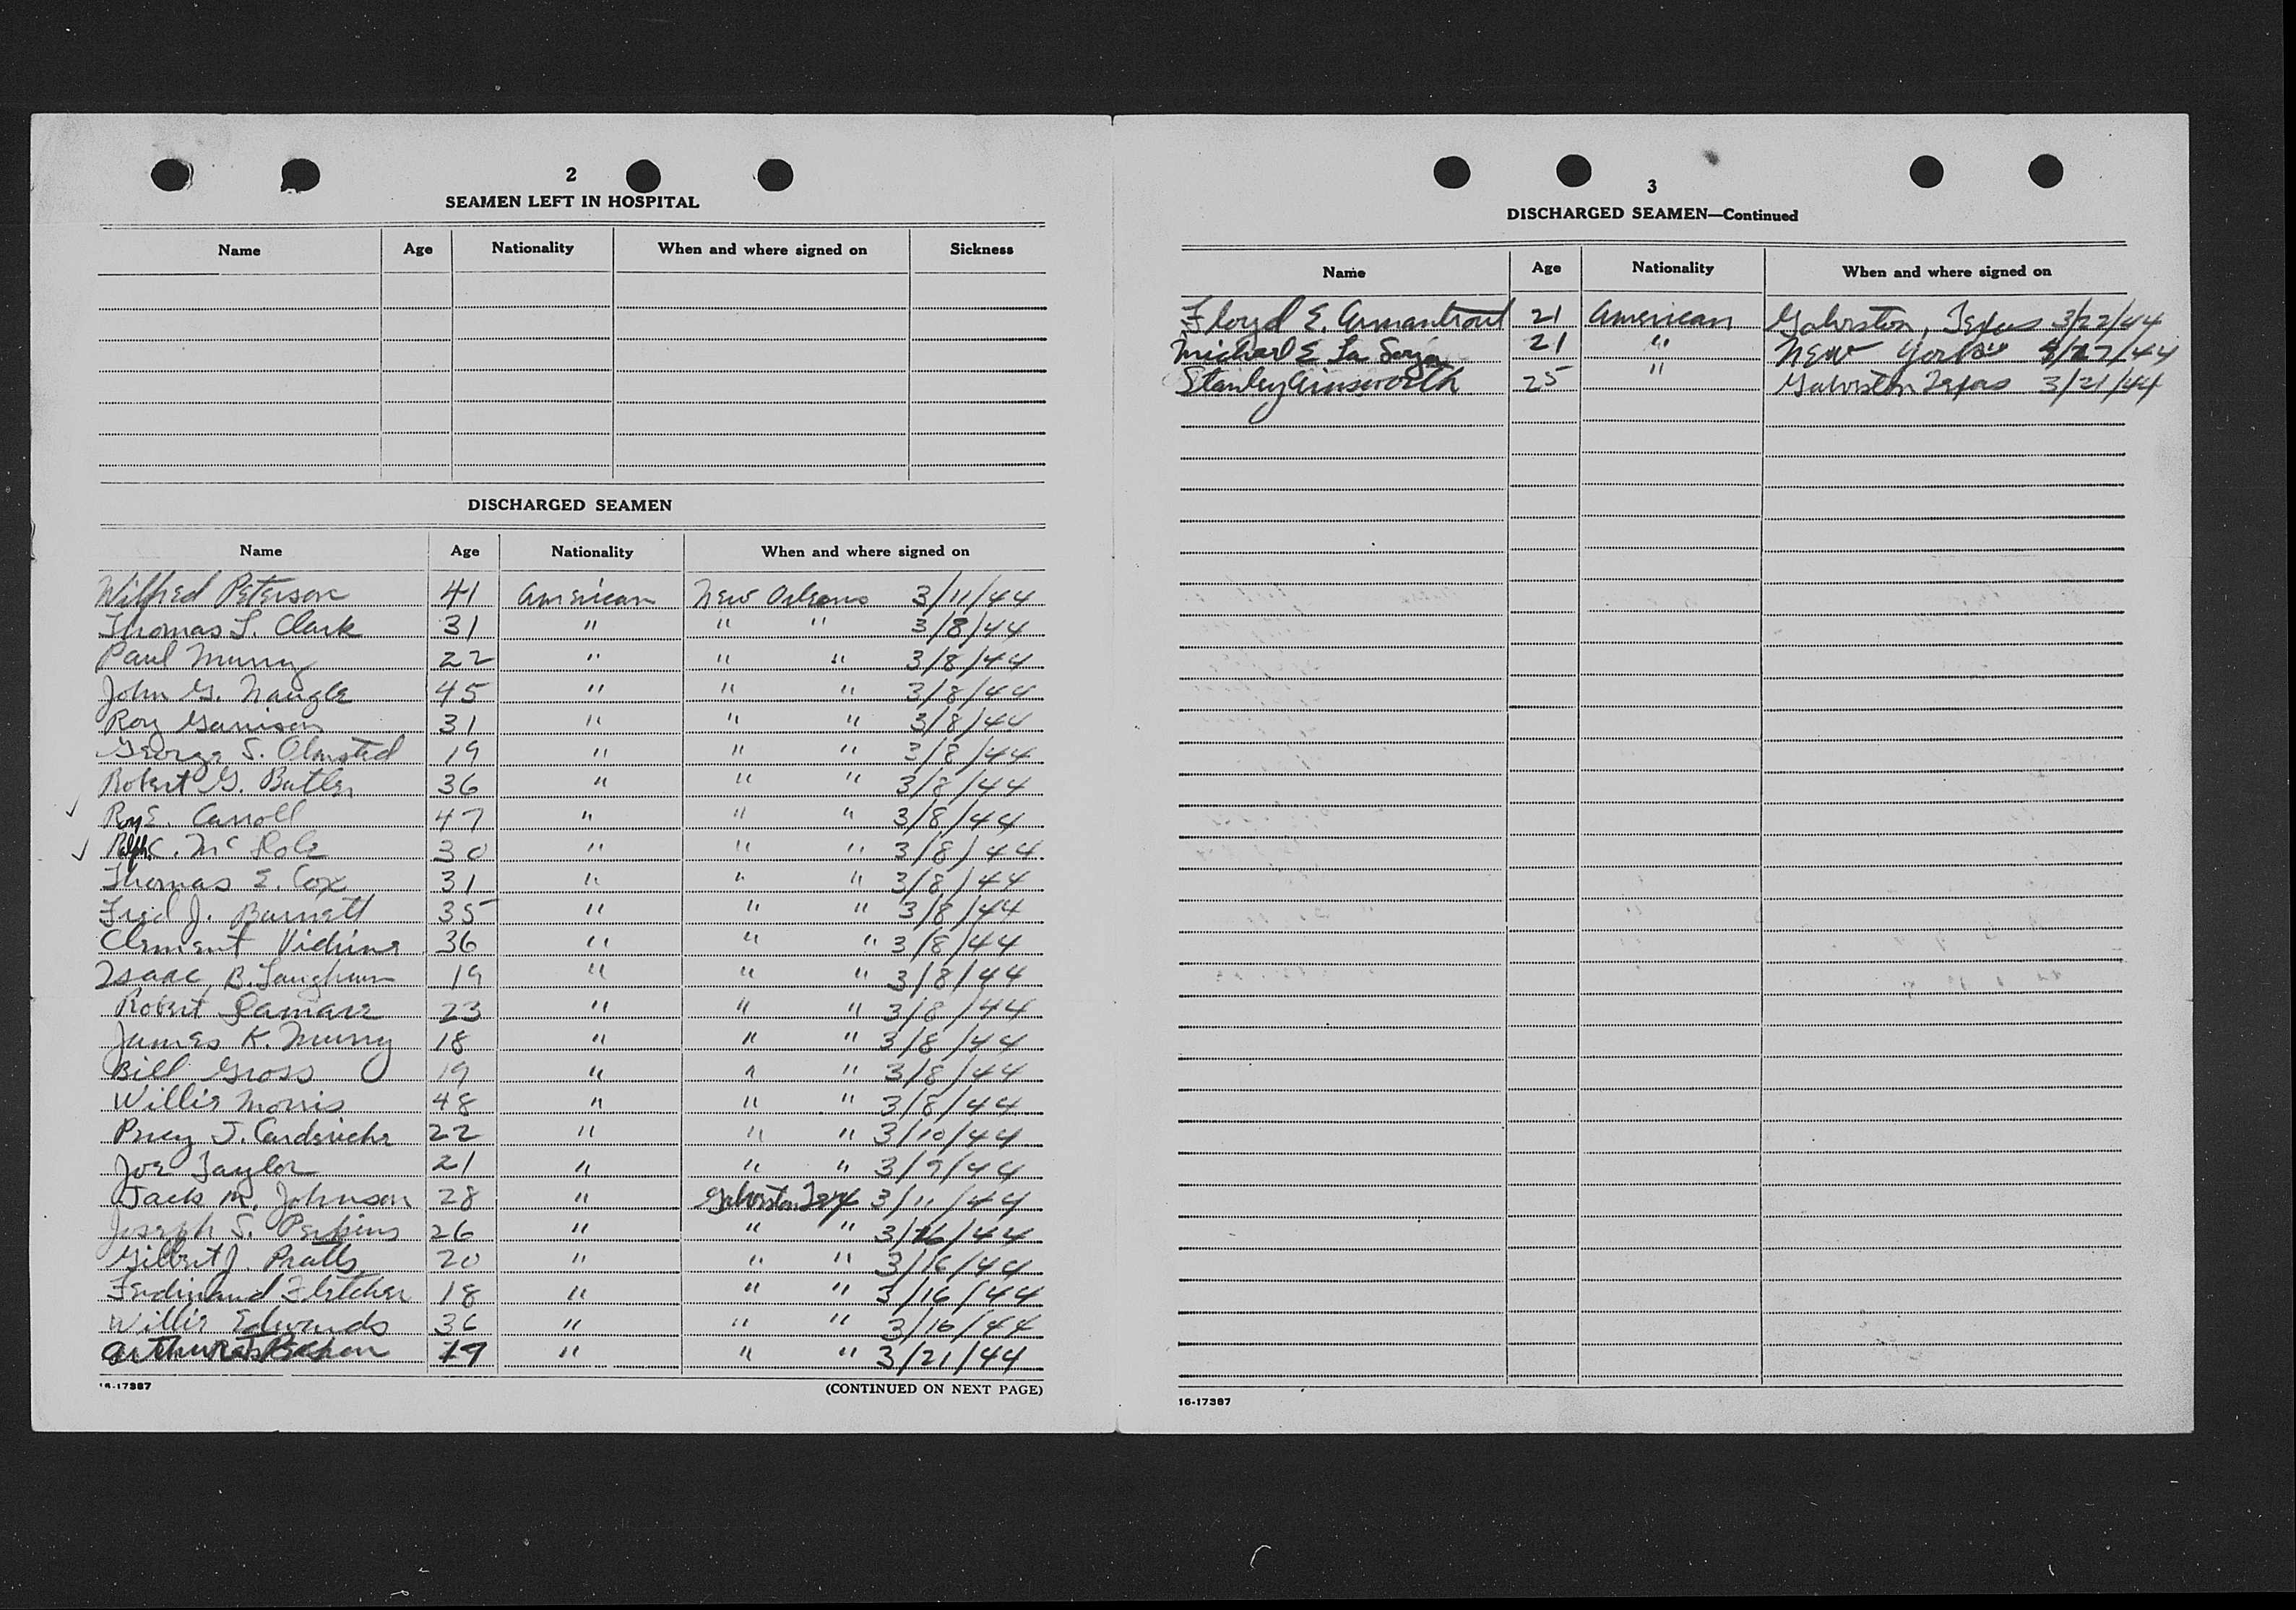 2
SEAMEN LEFT IN HOSPITAL
Name Age Nationality When and where signed on Sickness
DISCHARGED SEAMEN
Name Age Nationality When and where signed on
Wilfred Peterson 41 American New Orleans 3/11/44
Thomas L. Clark 31 " " " 3/8/44
Paul Murry 22 " " " 3/8/44
John G. Naugle 45 " " " 3/8/44
Roy Garrison 31 " " " 3/8/44
George S. Olmsted 19 " " " 3/8/44
Robert G. Butler 36 " " " 3/8/44
Roy E. Carroll 47 " " " 3/8/44
Ralph C. Mc 30 " " " 3/8/44
Thomas E. Cox 31 " " " 3/8/44
Fred J. Burnett 35 " " " 3/8/44
Clement 36 " " " 3/8/44
Isaac B. 19 " " " 3/8/44
Robert 23 " " " 3/8/44
James K. Murry 18 " " " 3/8/44
Bill Gross 19 " " " 3/8/44
Willie Morris 48 " " " 3/8/44
J. 22 " " " 3/10/44
Joe Taylor 21 " " " 3/9/44
Jack M. Johnson 28 " Galveston Tex 3/11/44
Joseph S. Perkins 26 " " " 3/16/44
Gilbert J. Pratts 20 " " " 3/16/44
Ferdinand Fletcher 18 " " " 3/16/44
Willie Edwards 36 " " " 3/16/44
Arthur 19 " " " 3/21/44
16-17387 (CONTINUED ON NEXT PAGE)
3
DISCHARGED SEAMEN—Continued
Name Age Nationality When and where signed on
Floyd E. Armantrout 21 American Galveston, Texas 3/22/44
Michael E. La 21 " New York /27/44
Stanley Ainsworth 25 " Galveston Texas 3/21/44
16-17387